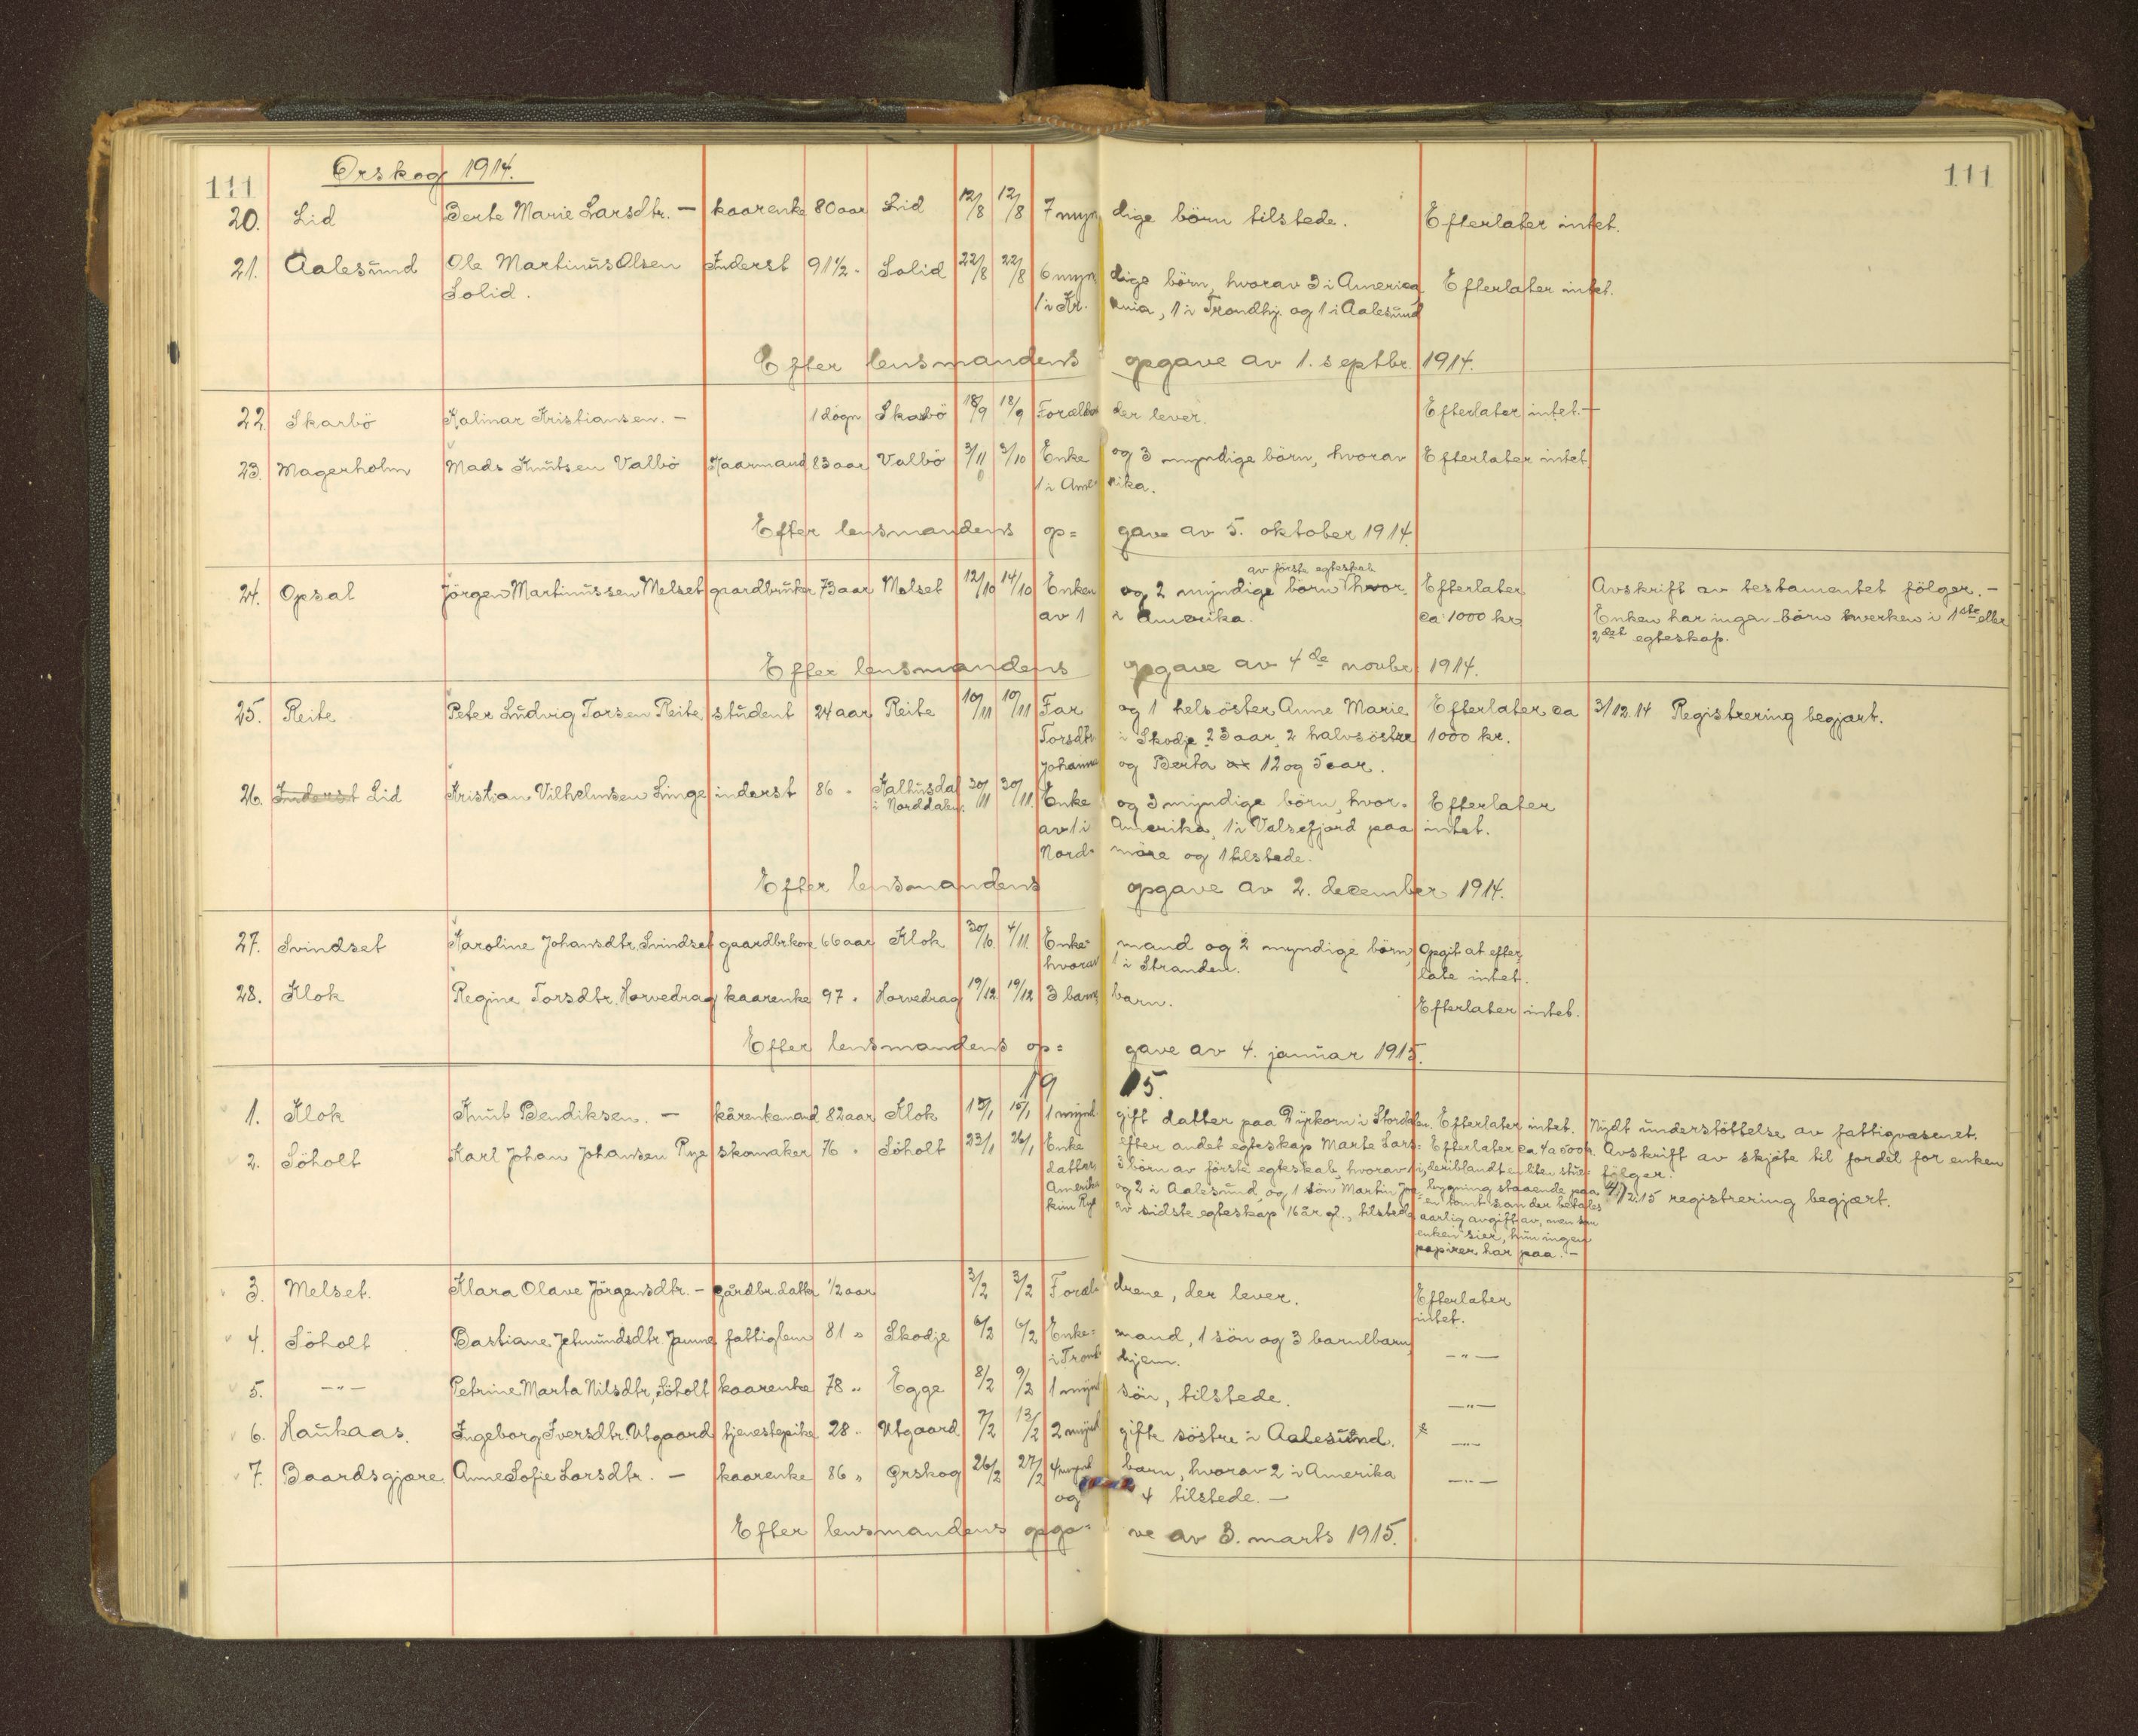 111
Orskog 1914.
111
20. Lid Berte Marie Larsdtr. — kaarenke 80 aar Lid 12/8 12/8 7 myn dige börn tilstede. Efterlater intet.
21. Aalesund Ole Martinus Olsen Inderst 91 1/2 " Solid 22/8 22/8 6 myn dige börn, hvorav 3 i America Efterlater intet.
Solid. 1 i Kr. ania, 1 i Trondhj. og 1 i Aalesund
Efter lensmandens opgave av 1. septbr. 1914.
22. Skarbö Kalinar Kristiansen. — 1 dögn Skarbö 18/9 18/9 Foræl der lever. Efterlater intet. —
23. Magerholm Mads Knutsen Valbö Kaarmand 83 aar Valbö 3/11 3/10 Enke og 3 myndige börn, hvorav Efterlater intet
1 i Ame rika.
Efter lensmandens op= gave av 5. oktober 1914.
av förste egteskab
24. Opsal Jörgen Martinussen Melset gaardbruker 73 aar Melset 12/10 14/10 Enken og 2 myndige börn hvor. Efterlater Avskrift av testamentet fölger. —
av 1 i Amerika. ca 1000 kr. Enken har ingen börn hverken i 1ste eller
2det egteskap.
Efter lensmandens opgave av 4de novbr. 1914.
25. Reite Peter Ludvig Torsen Reite student 24 aar Reite 10/11 10/11 Far og 1 helsöster Anne Marie Efterlater ca 3/12.14 Registrering begjært.
Torsdtr. i Skodje 23 aar, 2 halvsöstre 1000 kr.
Johanne og Berta 12 og 5 aar.
26. Inderst Lid Kristian Vilhelmsen Linge inderst 86 " Kalhusdal 30/11 30/11 Enke og 3 myndige börn, hvor= Efterlater
i Norddalen. av 1 i Amerika, 1 i Valsefjord paa intet.
Nord= möre og 1 tilstede.
Efter lensmandens opgave av 2. december 1914.
27. Svindset Karoline Johansdtr. Svindset gaardbr.kone 66 aar Klok 30/10 4/11 Enke= mand og 2 myndige börn, Opgit at efter=
hvorav 1 i Stranden. late intet.
28. Klok Regine Torsdtr. Horvedrag kaarenke 97 " Horvedrag 19/12 19/12 3 barne barn. Efterlater intet.
Efter lensmandens op= gave av 4. januar 1915.
19 15.
1. Klok Knut Bendiksen. — kårenkemand 82 aar Klok 15/1 15/1 1 mynd. gift datter paa Dyrkorn i Stordalen. Efterlater intet. Nydt understöttelse av fattigvæsenet.
2. Söholt Karl Johan Johansen Rye skomaker 76 " Söholt 23/1 26/1 Enke efter andet egteskap Marte Lars= Efterlater ca 4 a 500 kr. Avskrift av skjöte til fordel for enken
datter, 3 börn av förste egteskab, hvorav 1 i, deriblandt en liten stue= fölger.
Amerika og 2 i Aalesund, og 1 sön Martin Joa= bygning staaende paa 4/12.15 registrering begjært.
kim Rye av sidste egteskap 16 år gl., tilstede en tomt som der betales
aarlig avgift av, men som
enken sier, hun ingen
papirer har paa. —
3. Melset. Klara Olave Jörgensdtr. — gårdbr.datter 1/2 aar 3/2 3/2 Foræl drene, der lever. Efterlater
intet.
4. Söholt Bastiane Jetmundsdtr. fattiglem 81 " Skodje 6/2 6/2 Enke= mand, 1 sön og 3 barnebarn — " —
i Trond hjem.
5. — " — Petrine Marta Nilsdtr. Söholt kaarenke 78 " Egge 8/2 9/2 1 mynd sön, tilstede. — " —
6. Haukaas. Ingeborg Iversdtr. Utgaard tjenestepike 28 " Utgaard 7/2 13/2 2 mynd gifte söstre i Aalesund. — " —
7. Baardsgjære Anne Sofie Larsdtr. — kaarenke 86 " Örskog 26/2 27/2 4 mynd barn, hvorav 2 i Amerika — " —
og 4 tilstede. —
Efter lensmandens opga= ve av 3. marts 1915.